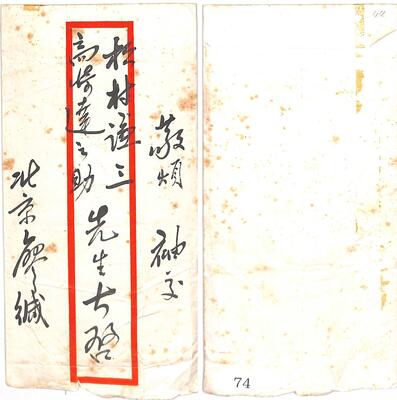 敬煩 袖交
松村謙三
高碕達之助
先生大啓
北京廖緘
74